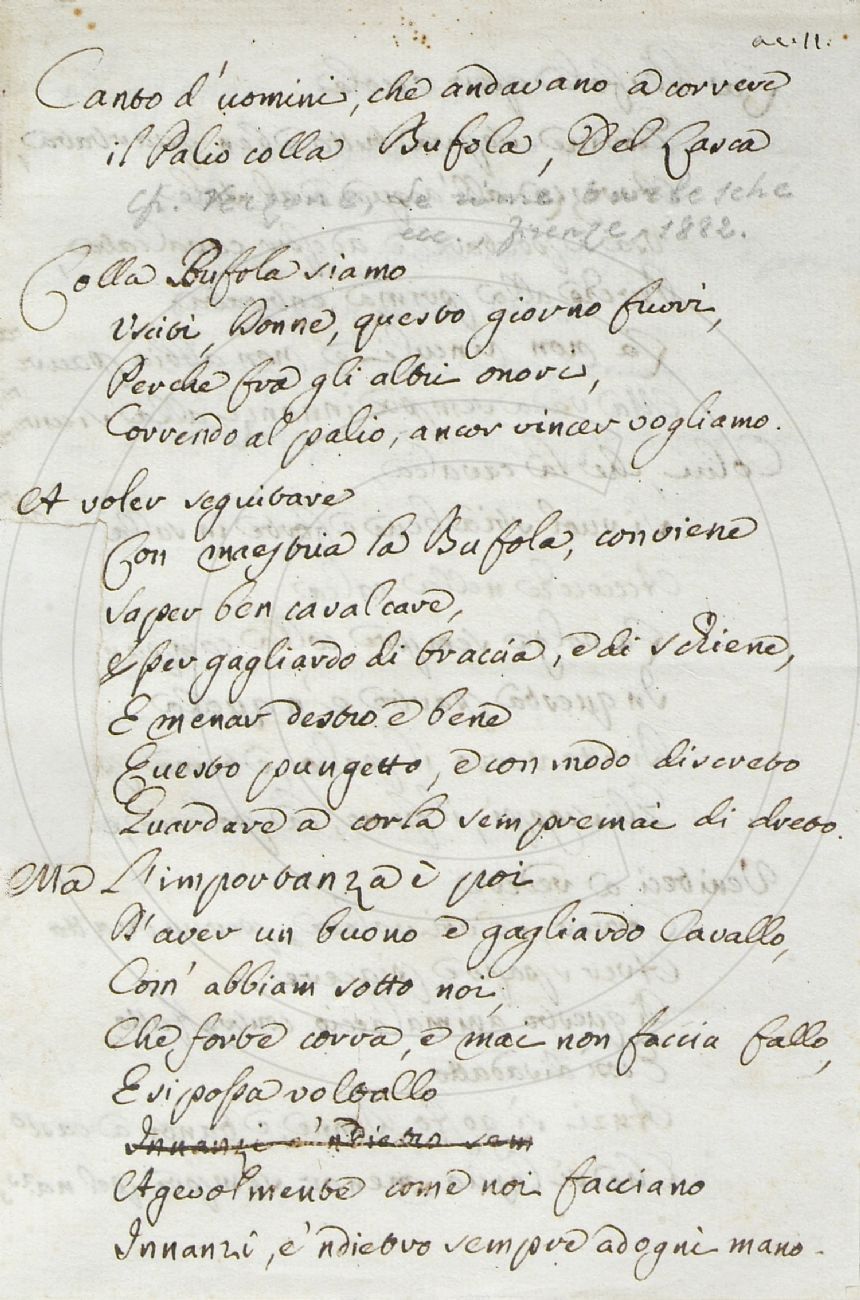 ac. 11.
Canto d'uomini, che andavano a correre
il Palio colla Bufola, Del Lasca
cf. Verzone, Le rime burlesche
ecc. Firenze, 1882.
Colla Bufola siamo
Usciti, Donne, questo giorno fuori,
Perche fra gli altri onori,
Correndo al palio, ancor vincer vogliamo.
A voler seguitare
Con maestria la Bufola, conviene
saper ben cavalcare,
E per gagliardo di braccia, e di schiene,
E menar destro e bene
Questo pungetto, e con modo discreto
Guardare a corla sempremai di dreto.
Ma L'importanza è poi
D'aver un buono e gagliardo Cavallo,
Com' abbiam sotto noi,
Che forte corra, e mai non faccia fallo,
E si possa voltallo
Innanzi e 'ndietro sem
Agevolmente come noi facciano
Innanzi, e 'ndietro sempre ad ogni mano.